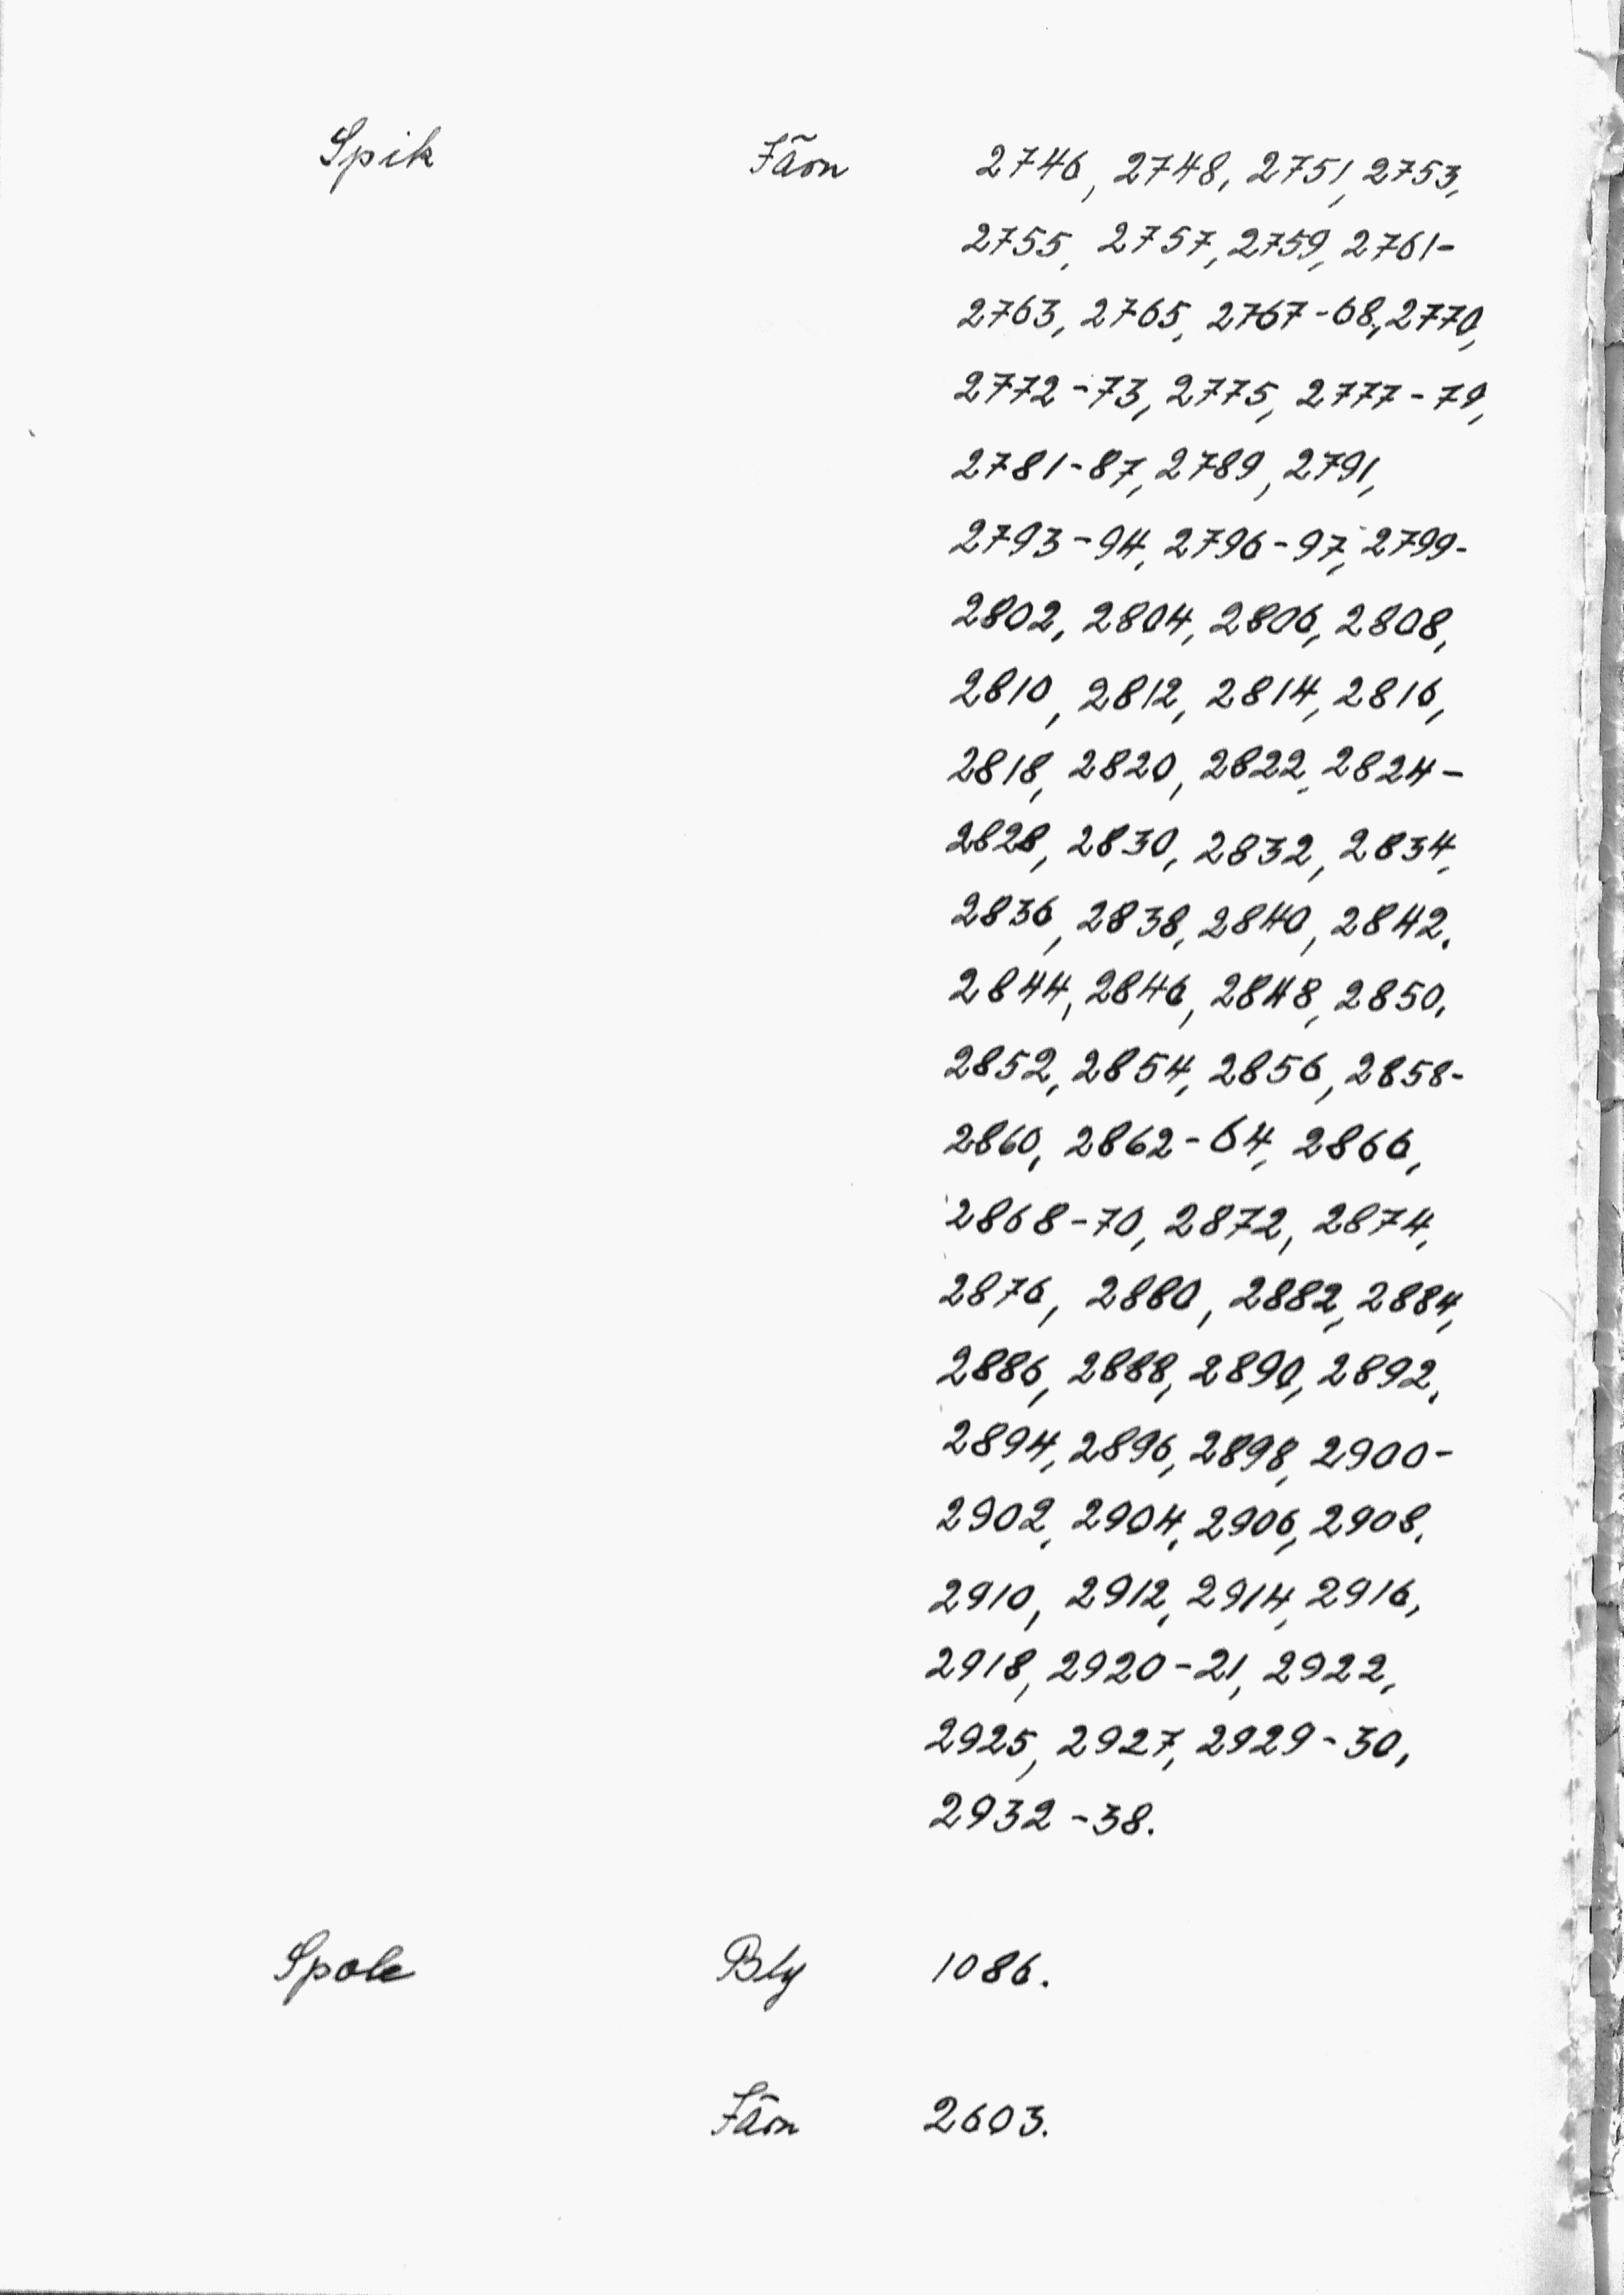 Spik Järn 2746, 2748, 2751, 2753,
2755, 2757, 2759, 2761-
2763, 2765, 2767-68, 2770,
2772-73, 2775, 2777-79,
2781-87, 2789, 2791,
2793-94, 2796-97, 2799-
2802, 2804, 2806, 2808,
2810, 2812, 2814, 2816,
2818, 2820, 2822, 2824-
2828, 2830, 2832, 2834,
2836, 2838, 2840, 2842,
2844, 2846, 2848, 2850,
2852, 2854, 2856, 2858-
2860, 2862-64, 2866,
2868-70, 2872, 2874,
2876, 2880, 2882, 2884,
2886, 2888, 2890, 2892,
2894, 2896, 2898, 2900-
2902, 2904, 2906, 2908,
2910, 2912, 2914, 2916,
2918, 2920-21, 2922,
2925, 2927, 2929-30,
2932-38.
Spole Bly 1086.
Järn 2603.